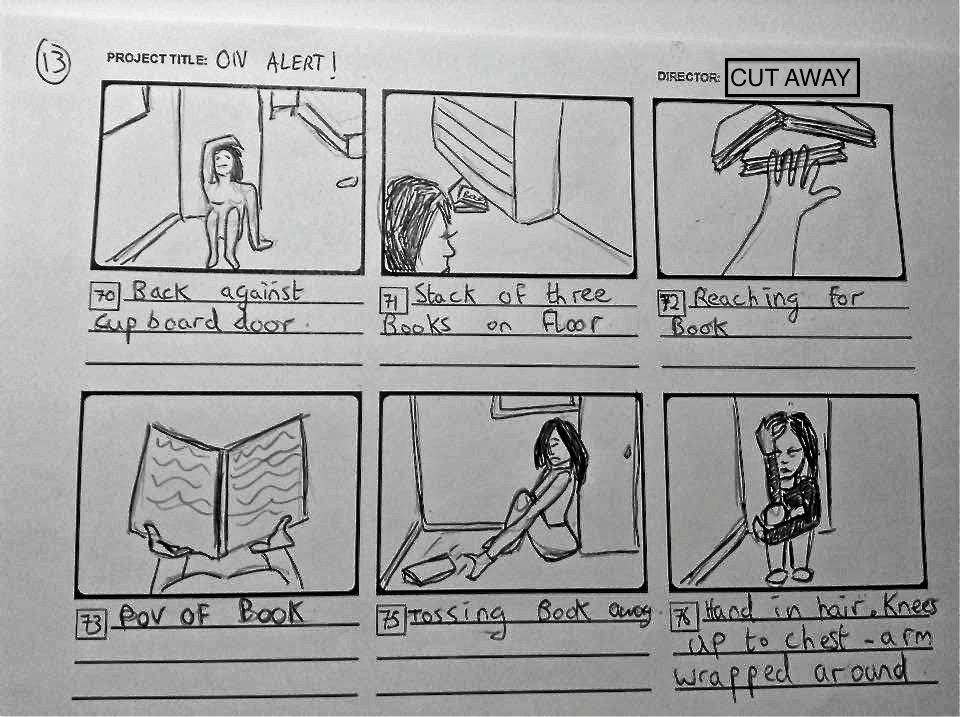 13
PROJECT TITLE: ON ALERT!
DIRECTOR: CUT AWAY
70 Back against
cupboard door.
71 Stack of three
Books on Floor
72 Reaching for
Book
73 POV OF Book
75 Tossing Book away
76 Hand in hair. Knees
up to chest - arm
wrapped around